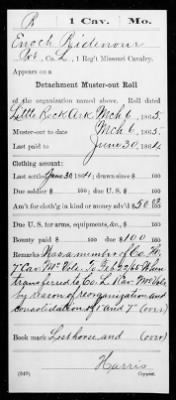 R | 1 Cav. | Mo.
Enoch Ridenour
Pvt., Co. L, 1 Reg't Missouri Cavalry.
Appears on a
Detachment Muster-out Roll
of the organization named above. Roll dated
Little Rock Ark Mch 6, 1865.
Muster-out to date Mch 6, 1865.
Last paid to June 30, 1864.
Clothing account:
Last settled June 30 1864; drawn since $ 100
Due soldier $ 100; due U. S. $ 100
Am't for cloth'g in kind or money adv'd $ 50
Due U. S. for arms, equipments, &c., $ 100
Bounty paid $ 100; due $ 100 100
Remarks: Was a member of Co.
7 Cav Mo Vols. To Feby 22/65 When
transferred to Co. L 1 Cav. Mo Vols
by reason of reorganization and
consolidation of 1" and 7" (over)
Book mark: Lost horse and (over)
Harris
(340) Copyist.